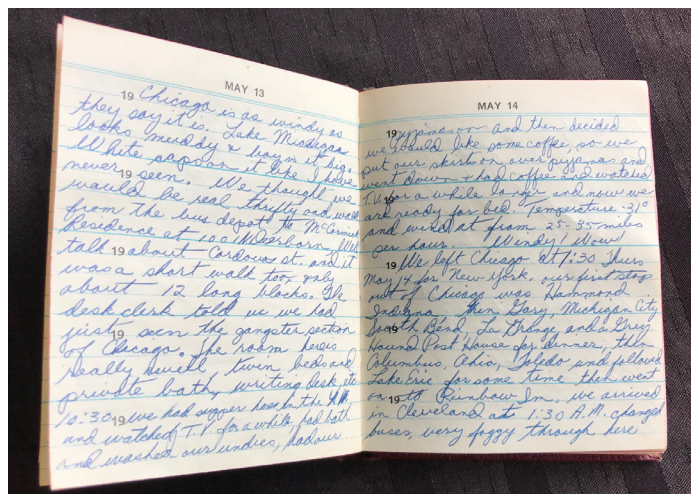 MAY 13
19 Chicago is as windy as
they say it is. Lake Michigan
looks muddy & boy is it big.
White caps on it like I have
never 19 seen. We thought we
would be real thrifty and walk
from the bus depot to McCormick
Residence at 100 N Dearborn. Well
talk 19 about Cordova st. and it
was a short walk too, only
about 12 long blocks. The
desk clerk told us we had
just 19 seen the gangster section
of Chicago. The room here is
really swell twin beds and
private bath, writing desk, etc.
10:30 19 we had supper here in the
and watched T.V. for a while, had bath
and washed our undies, had our
MAY 14
19 pyjamas on and then decided
we would like some coffee, so we
put our skirts on over pyjamas and
went down & had coffee and watched
T.V. 19 for a while longer and now we
are ready for bed. Temperature - 31°
and wind at from 25-35 miles
per hour. Windy! Wow!
19 We left Chicago at 1:30 Thurs
May 14 for New York. our first stop
out of Chicago was Hammond
Indiana then Gary, Michigan City
19 South Bend, La Grange, and a Grey
Hound Post House for dinner, then
Columbus, Ohio, Toledo and followed
Lake Erie for some time then went
on 19 to Rainbow Inn. we arrived
in Cleveland at 1:30 A.M. changed
buses, very foggy through here